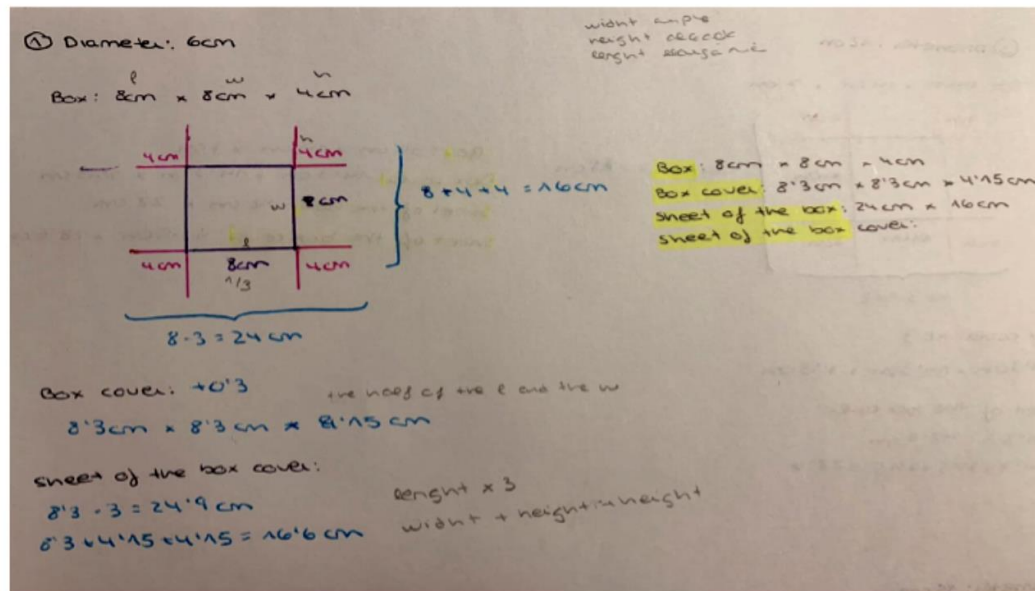 ① Diameter: 6cm
widht ample
height
lenght
l w h
Box: 8cm × 8cm × 4cm
4cm
h
4cm
w
8cm
8+4+4 = 16cm
l
4cm
8cm
4cm
1/3
8·3 = 24cm
Box: 8cm × 8cm × 4cm
Box cover: 8'3cm × 8'3cm × 4'15cm
Sheet of the box: 24cm × 16cm
Sheet of the box cover:
Box cover: +0'3
the half of the l and the w
8'3cm × 8'3cm × 4'15cm
Sheet of the box cover:
8'3·3 = 24'9cm
lenght × 3
8'3+4'15+4'15 = 16'6cm
widht + height + height